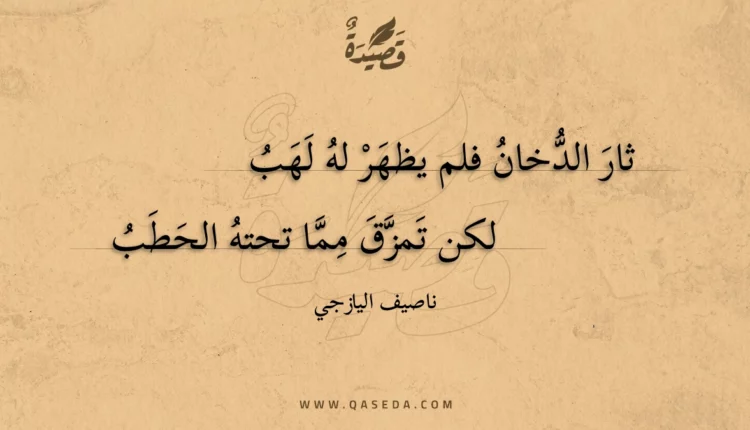 قَصِيْدَةٌ
ثارَ الدُّخانُ فلم يظهَرْ لهُ لَهَبُ
لكن تَمزَّقَ مِمَّا تحتهُ الحَطَبُ
ناصيف اليازجي
WWW.QASEDA.COM